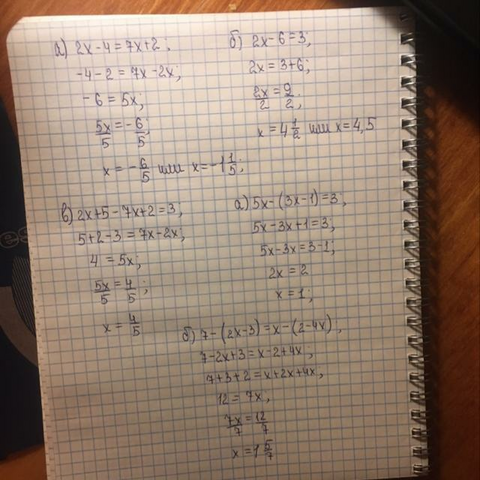 а) 2x-4=7x+2;
-4-2=7x-2x;
-6=5x;
5x/5=-6/5;
x=-6/5 или x=-1 1/5;
б) 2x-6=3;
2x=3+6;
2x/2=9/2;
x=4 1/2 или x=4,5
в) 2x+5-7x+2=3;
5+2-3=7x-2x;
4=5x;
5x/5=4/5;
x=4/5
а) 5x-(3x-1)=3;
5x-3x+1=3;
5x-3x=3-1;
2x=2
x=1;
б) 7-(2x-3)=x-(2-4x);
7-2x+3=x-2+4x;
7+3+2=x+2x+4x;
12=7x;
7x/7=12/7
x=1 5/7